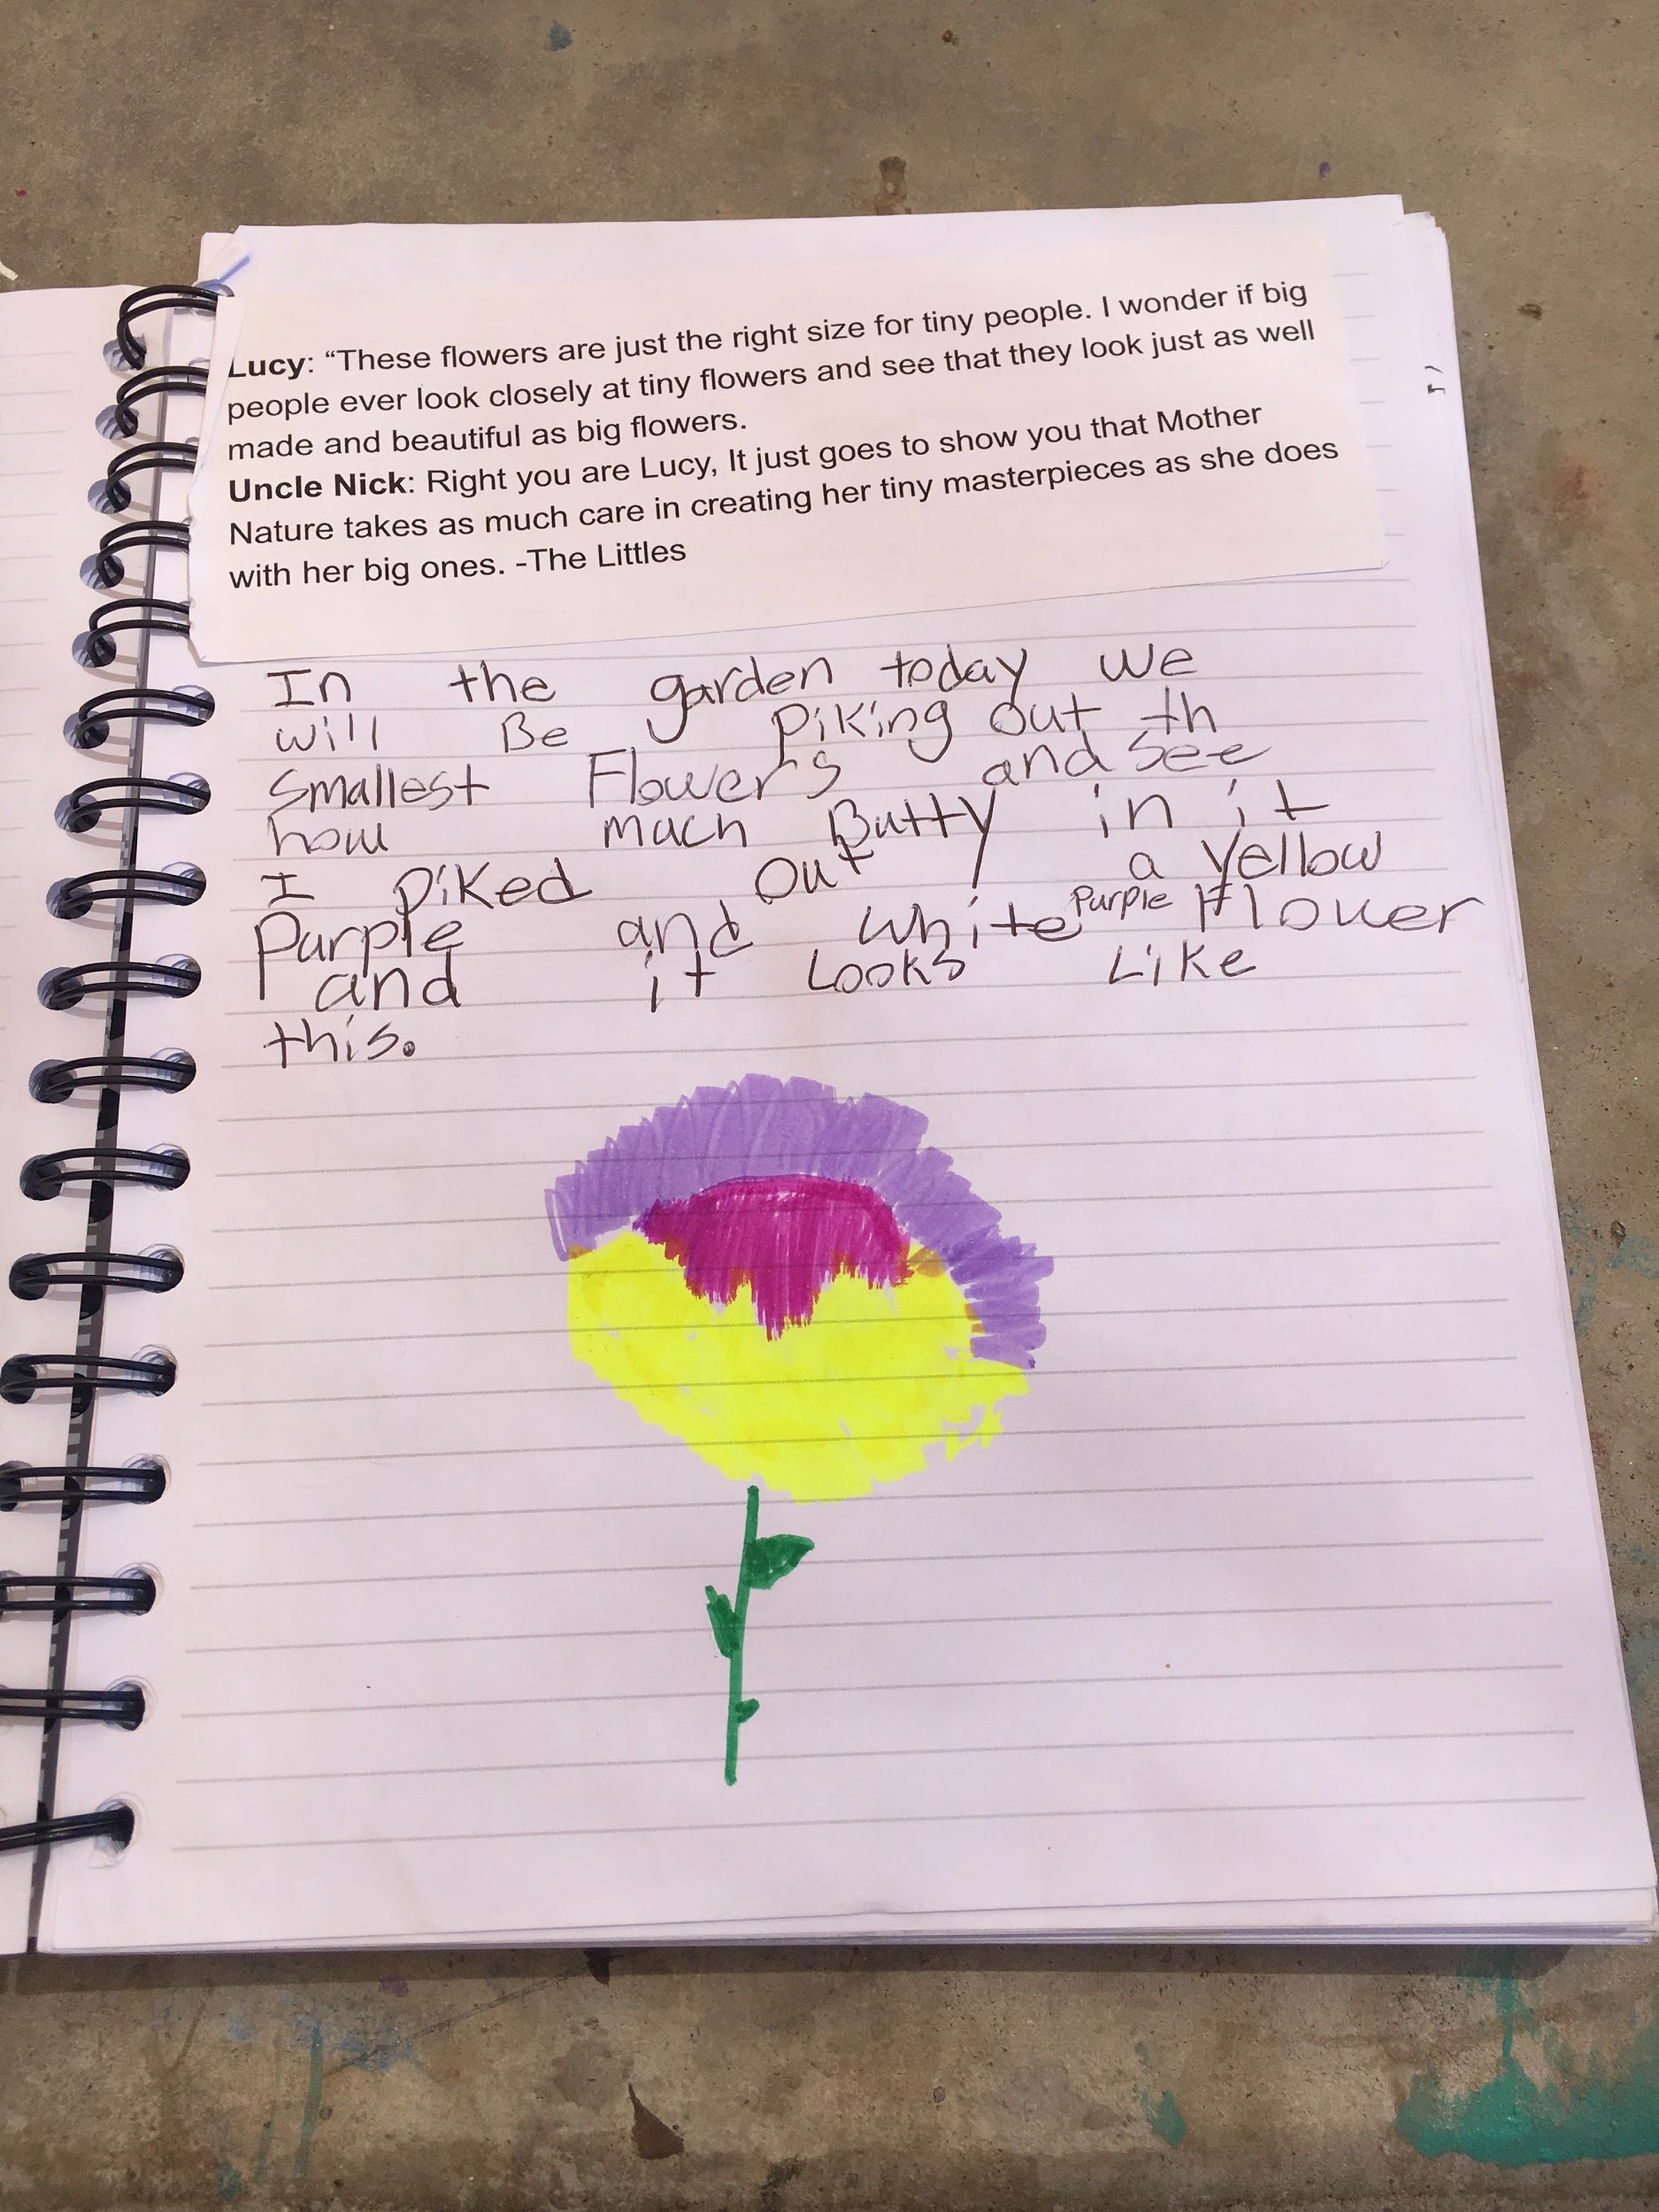 Lucy: “These flowers are just the right size for tiny people. I wonder if big
people ever look closely at tiny flowers and see that they look just as well
made and beautiful as big flowers.
Uncle Nick: Right you are Lucy, It just goes to show you that Mother
Nature takes as much care in creating her tiny masterpieces as she does
with her big ones. -The Littles
In the garden today we
will Be piking out th
smallest Flowers and see
how mach Butty in it
I piked out a yellow
Purple and white Purple Flower
and it Looks Like
this.